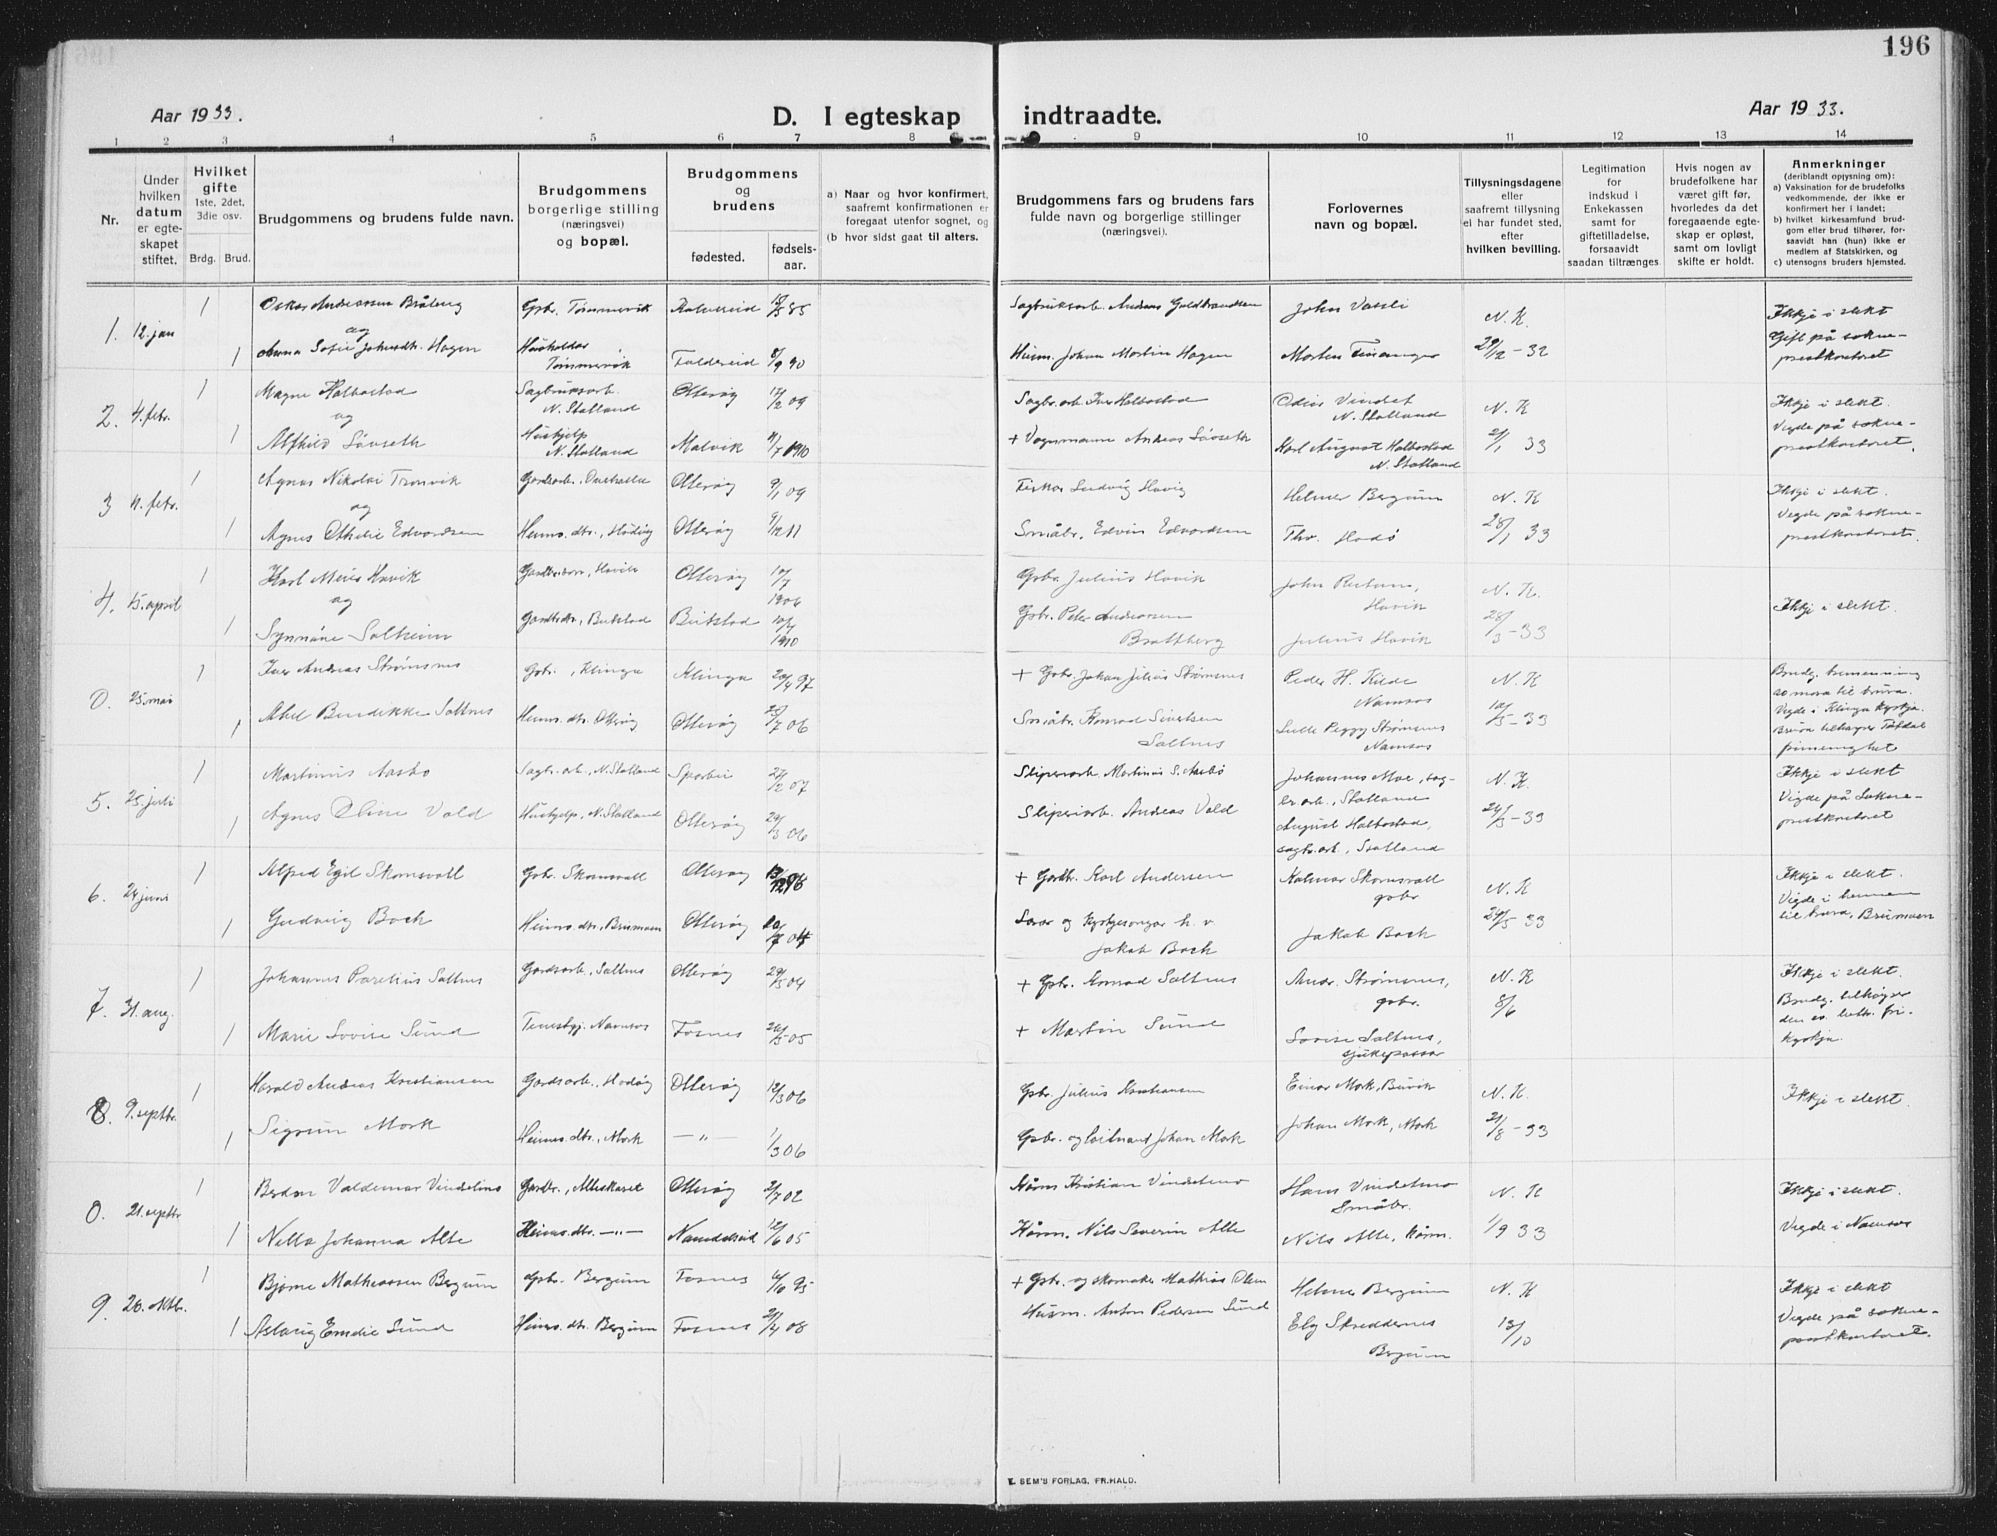 196
Aar 1933.
D. I egteskap indtraadte.
Aar 1933.
1 2 3 4 5 6 7 8 9 10 11 12 13 14
Nr.
Under hvilken datum er egteskapet stiftet.
Hvilket gifte
1ste, 2det, 3die osv.
Brdg. Brud.
Brudgommens og brudens fulde navn.
Brudgommens borgerlige stilling (næringsvei) og bopæl.
Brudgommens og brudens
fødested.
fødsels-aar.
a) Naar og hvor konfirmert, saafremt konfirmationen er foregaat utenfor sognet, og
(b hvor sidst gaat til alters.
Brudgommens fars og brudens fars fulde navn og borgerlige stillinger (næringsvei).
Forlovernes navn og bopæl.
Tillysningsdagene eller saafremt tillysning ei har fundet sted, efter hvilken bevilling.
Legitimation for indskud i Enkekassen samt for giftetilladelse, forsaavidt saadan tiltrænges.
Hvis nogen av brudefolkene har været gift før, hvorledes da det foregaaende egteskap er opløst, samt om lovligt skifte er holdt.
Anmerkninger
(deriblandt opjysning om):
a) Vaksination for de brudefolks vedkommende, der ikke er konfirmert her i landet;
b) hvilket kirkesamfund brudgom eller brud tilhører, forsaavidt han (hun) ikke er medlem af Statskirken, og
c) utensogns bruders hjemsted.
1. 12. jan 1 Oskar Andreassen Gbr. Tømmervik 85 Sagbruksarb. Andreas Guldbrandsen John Vassli N. K. Ikkje i slekt
og
1 Anna Sofie Johansdtr. Hagen Tømmervik Foldereid 8/9 90 Husm. Johan Martin Hagen Morten Finanger 29/12 - 32 Gift på sokneprestkontoret
2. 4. febr. 1 Magne Halbostad Sagbruksarb. N. Statland Otterøy 17/2 09 Sagbr.arb. Iver Halbostad Odin Vindset N. Statland N. K Ikkje i slekt.
og
1 Alfhild Søvseth Hushjelp N. Statland Malvik 11/7 1910 + Vognmann Andreas Søvseth Karl August Halbostad N. Statland 21/1 33 Vigde på sokneprestkontoret.
3 4. febr. 1 Agnar Nikolai Tronvik Gardsarb., Overhalla Otterøy 9/1 09 Fisker Ludvig Havig Helmer Bergum N. K Ikkje i slekt.
og
1 Agnes Othelie Edvardsen Heimev. dtr., Hodøy Otterøy 9/12 11 Småbr. Edvin Edvardsen Thv. Hodø 28/1 33 Vegde på sokneprestkontoret.
4. 15. april 1 Karl Havik Havik Otterøy 10/7 1906 Gbr. Julius Havik John Havik N. K. Ikkje i slekt.
og
1 Synnøve Solheim Beitstad Beitstad 1910 Gbr. Peter Andreassen Brattberg Julius Havik 28/3 - 33
0. 25. mai 1 Iver Andreas Strømsnes Gbr., Klinga Klinga 20/4 97 + Gbr. Johan Julius Strømsnes Peder H. Kilde Namsos N. K
1 Abel Bendikke Saltnes Heimev. dtr. Otterøy Otterøy 25/7 06 Småbr. Konrad Sivertsen Saltnes Strømsnes Namsos 10/5 - 33 Vigde i Klinga kyrkja.
5. 25. juli 1 Martinus Aasbø Sagbr. arb., N. Statland Sparbu 27/2 07 Sliperiarb. Martinus S. Aasbø Johannes Moe, sagbr.arb., Statland N. K. Ikkje i slekt
1 Agnes Oline Vold Hushjelp, N. Statland Otterøy 29/3 06 Sliperiarb. Andreas Vold August Halbostad, sagbr.arb., Statland 24/5 - 33 Vigde på Sokneprestkontoret
6. 24 juni 1 Alfred Egil Skomsvoll Gbr. Skomsvoll Otterøy 96 + Gardbr. Karl Andersen Kalmar Skomsvoll gbr N. K Ikkje i slekt.
1 Gudveig Boch Heimev. dtr., Brumoen Otterøy 04 Lærar og kyrkjesongar h. v. Jakob Boch Jakob Boch 24/5 33 Vigde i heimen til brura, Brumoen
7. 31. aug. 1 Johannes Parelius Saltnes Gardsarb., Saltnes Otterøy 29/3 04 + Gbr. Konrad Saltnes Andr. Strømsnes, gbr. N. K Ikkje i slekt.
1 Marie Lovise Sund Tenestgj. Namsos Fosnes 26/5 05 + Martin Sund Lovise Saltnes, sjukepassar 8/6 Brudg. tilhøyrer den ev. luth. frikyrkja.
8. 9. septbr. 1 Harald Andreas Kristiansen Gardsarb., Hodøy Otterøy 12/3 06 Gbr. Julius Kristiansen Einar Mork, Buvik N. K. Ikkje i slekt.
1 Sigrun Mork Heimev. dtr., Mork — „ — 1/3 06 Gbr. og løitnant Johan Mork Johan Mork, Mork 21/8 - 33
0. 21. septbr 1 Valdemar Vindetmo Gardbr., Alteskaret Otterøy 2/7 02 Kårm. Kristian Vindetmo Hans Vindetmo Småbr. N. K Ikkje i slekt.
1 Nella Johanna Alte Heimev. dtr. — „ — Namdalseid 12/6 05 Kårm. Nils Severin Alte Nils Alte, kårm. 1/9 33 Vigde i Namsos
9. 26. oktbr. 1 Bjarne Mathiassen Bergum Gbr. Bergum Fosnes 95 + Gbr. og skomaker Mathias Olsen Helmer Bergum N. K Ikkje i slekt
1 Aslaug Emelie Sund Heimev. dtr. Bergum Fosnes 21/4 08 Husm. Anton Pedersen Sund Elg Skreddernes Bergum 13/10 Vigde på sokneprestkontoret.
E. SEM'S FORLAG, FR.HALD.